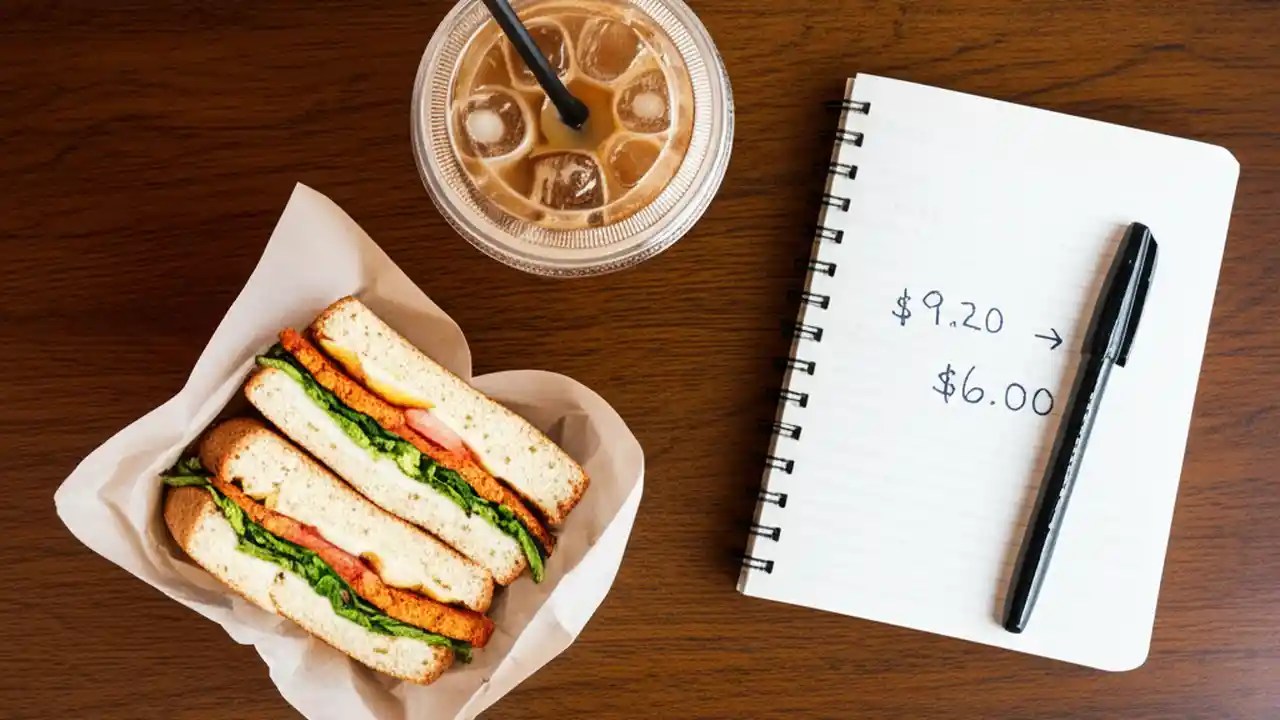 $9.20 →
$6.00